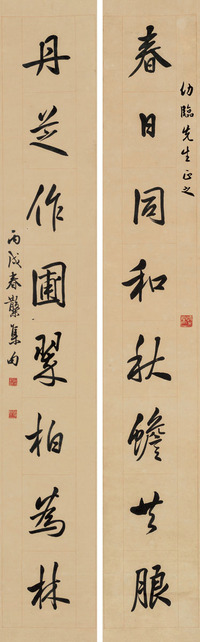 幼臨先生正之
春日同和秋蟾共朖
丹芝作圃翠柏為林
丙戌春集句